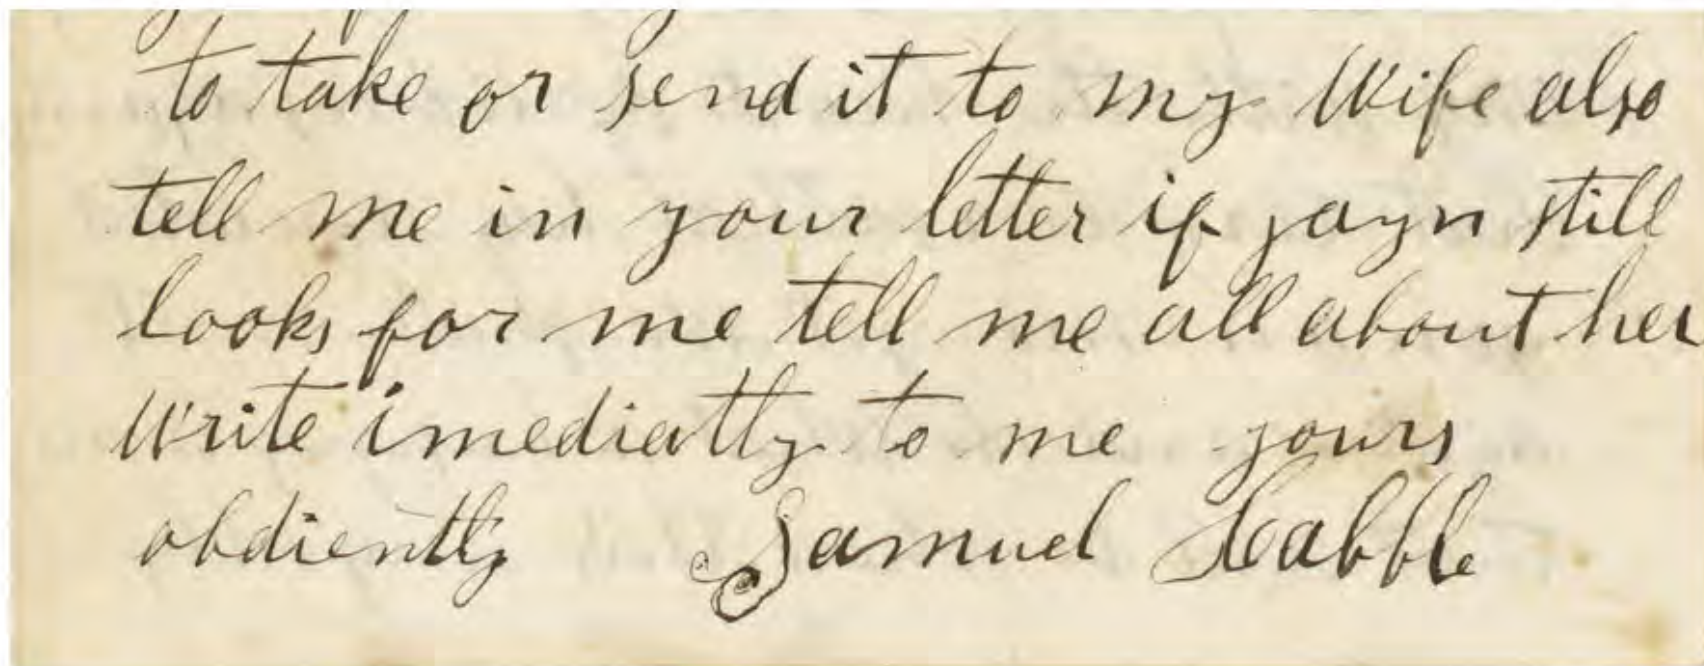 to take or send it to my Wife also
tell me in your letter if jayn still
looks for me tell me all about her
Write imediatly to me yours
obdiently Samuel Cabble